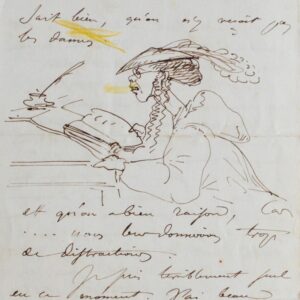 Sait bien, qu'on n'y reçoit pas
les dames
et qu'on a bien raison, Car
.... nous leur donnerions trop
de distractions.
Je suis terriblement seul
en ce moment. Mon beau